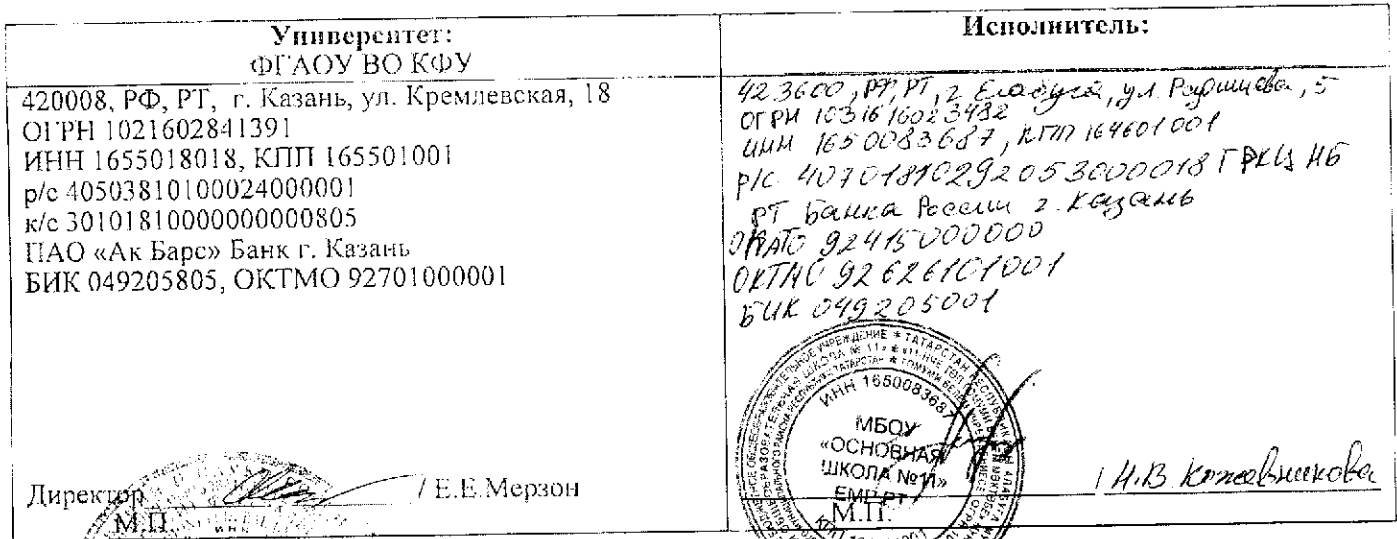 Университет:
ФГАОУ ВО КФУ
420008, РФ, РТ, г. Казань, ул. Кремлевская, 18
ОГРН 1021602841391
ИНН 1655018018, КПП 165501001
р/с 40503810100024000001
к/с 30101810000000000805
ПАО «Ак Барс» Банк г. Казань
БИК 049205805, ОКТМО 92701000001
Директор / Е.Е.Мерзон
М.П.
Исполнитель:
423600, РФ, РТ, г. Елабуга, ул. Радищева, 5
ОГРН 1031616023482
ИНН 1650083687, КПП 164601001
р/с 40701810292053000018 ГРКЦ НБ
РТ Банка России г. Казань
ОКАТО 92415000000
ОКТМО 92626101001
БИК 049205001
ИНН 1650083687
МБОУ
«ОСНОВНАЯ
ШКОЛА №11»
ЕМР РТ
М.П.
/ Н.В. Кожевникова